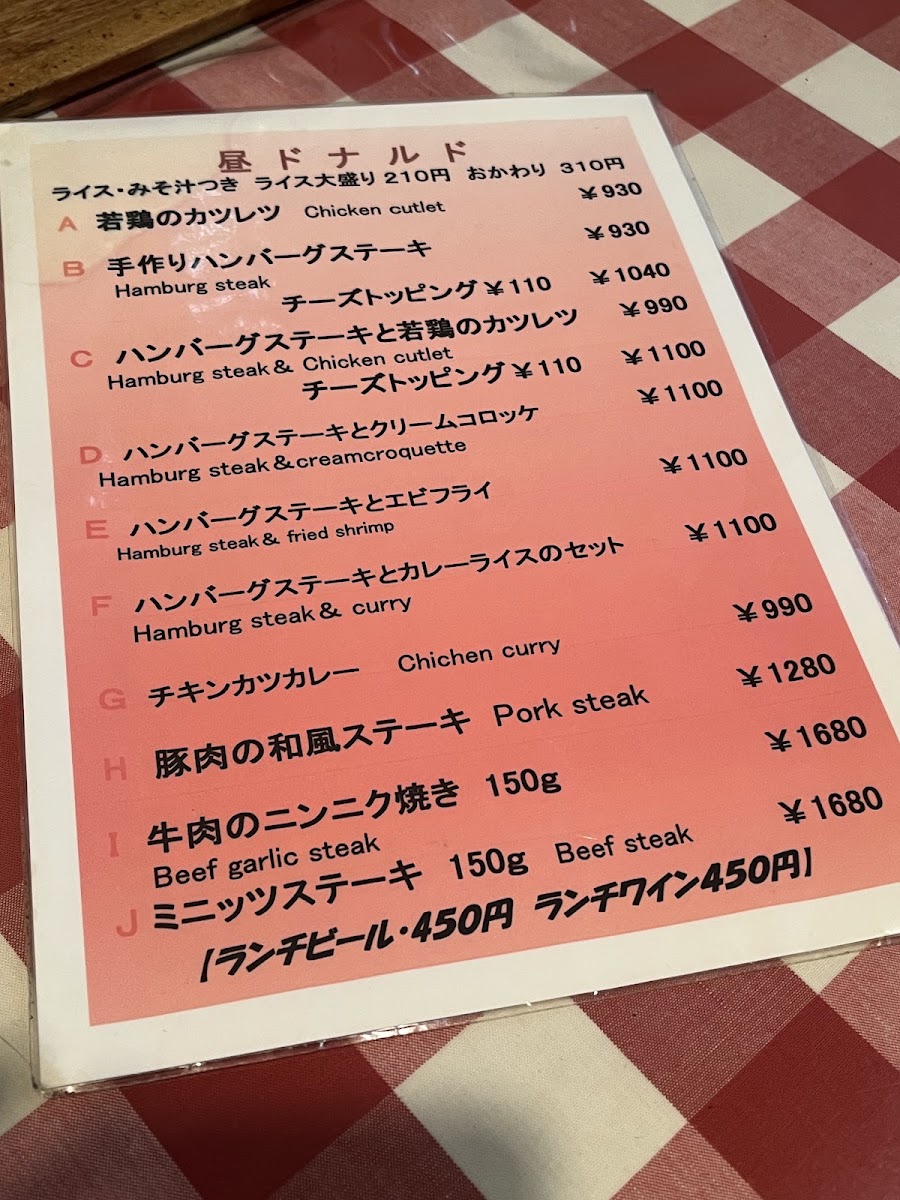 昼ドナルド
ライス・みそ汁つき ライス大盛り210円 おかわり 310円
A 若鶏のカツレツ Chicken cutlet ¥930
B 手作りハンバーグステーキ ¥930
Hamburg steak
チーズトッピング¥110 ¥1040
C ハンバーグステーキと若鶏のカツレツ ¥990
Hamburg steak& Chicken cutlet
チーズトッピング¥110 ¥1100
D ハンバーグステーキとクリームコロッケ ¥1100
Hamburg steak&creamcroquette
E ハンバーグステーキとエビフライ ¥1100
Hamburg steak& fried shrimp
F ハンバーグステーキとカレーライスのセット ¥1100
Hamburg steak& curry
G チキンカツカレー Chichen curry ¥990
H 豚肉の和風ステーキ Pork steak ¥1280
I 牛肉のニンニク焼き 150g ¥1680
Beef garlic steak
J ミニッツステーキ 150g Beef steak ¥1680
【ランチビール・450円 ランチワイン450円】